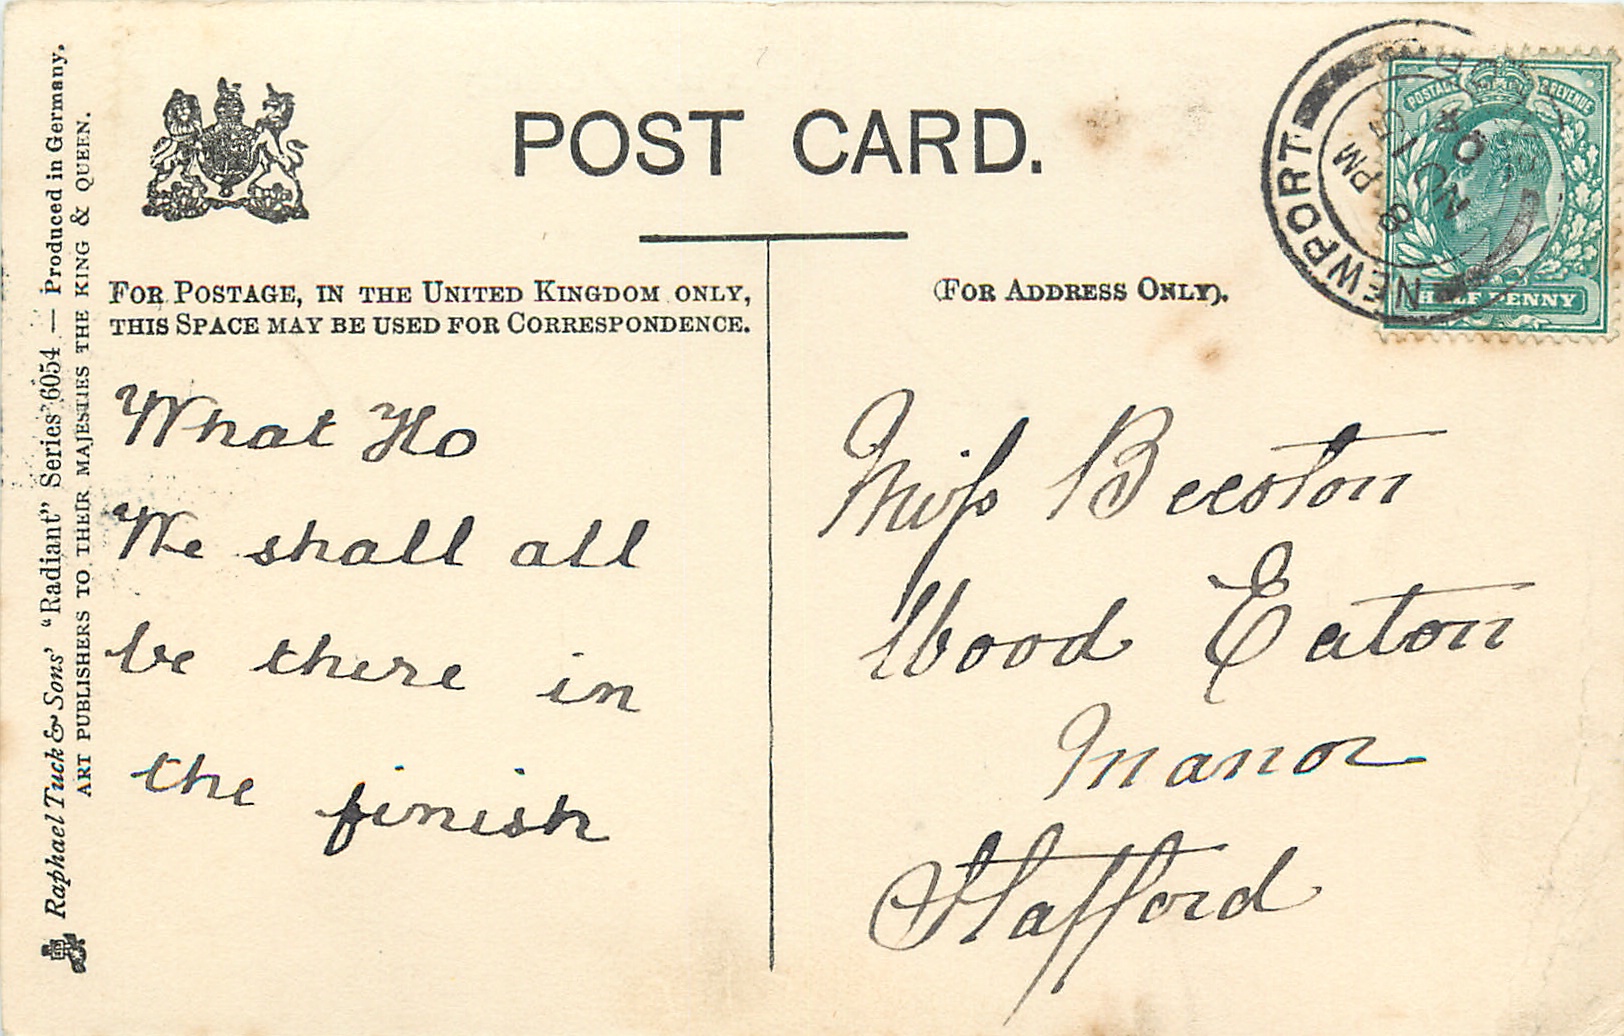 POST CARD.
FOR POSTAGE, IN THE UNITED KINGDOM ONLY,
THIS SPACE MAY BE USED FOR CORRESPONDENCE.
(FOR ADDRESS ONLY).
What Ho
We shall all
be there in
the finish
Miss Beeston
Wood Eaton
Manor
Stafford
Raphael Tuck & Sons' "Radiant" Series 6054 — Produced in Germany.
ART PUBLISHERS TO THEIR MAJESTIES THE KING & QUEEN.
NEWPORT
8 PM
POSTAGE REVENUE
HALF PENNY